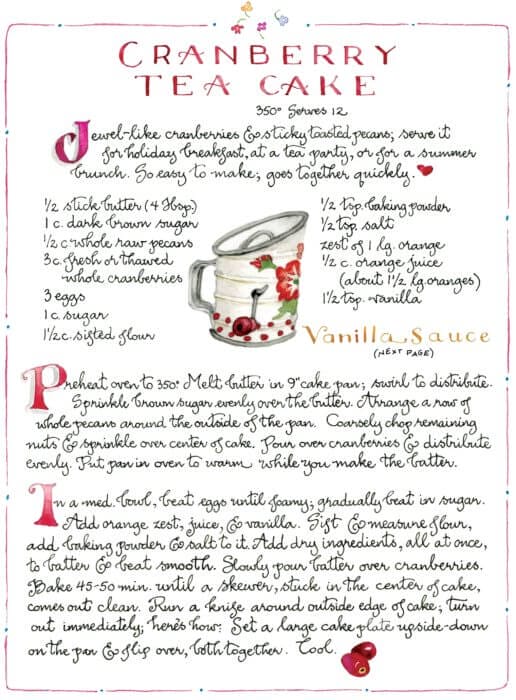 CRANBERRY
TEA CAKE
350° Serves 12
Jewel-like cranberries & sticky toasted pecans; serve it
for holiday breakfast, at a tea party, or for a summer
brunch. So easy to make; goes together quickly.
1/2 stick butter (4 tbsp.)
1 c. dark brown sugar
1/2 c whole raw pecans
3c. fresh or thawed
whole cranberries
3 eggs
1 c. sugar
1 1/2 c. sifted flour
1/2 tsp. baking powder
1/2 tsp. salt
zest of 1 lg. orange
1/2 c. orange juice
(about 1 1/2 lg oranges)
1 1/2 tsp. vanilla
Vanilla Sauce
(NEXT PAGE)
Preheat oven to 350° Melt butter in 9" cake pan; swirl to distribute.
Sprinkle brown sugar evenly over the butter. Arrange a row of
whole pecans around the outside of the pan. Coarsely chop remaining
nuts & sprinkle over center of cake. Pour over cranberries & distribute
evenly. Put pan in oven to warm while you make the batter.
In a med. bowl, beat eggs until foamy; gradually beat in sugar.
Add orange zest, juice, & vanilla. Sift & measure flour,
add baking powder & salt to it. Add dry ingredients, all at once,
to batter & beat smooth. Slowly pour batter over cranberries.
Bake 45-50 min. until a skewer, stuck in the center of cake,
comes out clean. Run a knife around outside edge of cake; turn
out immediately; here's how: Set a large cake plate upside-down
on the pan & flip over, both together. Cool.